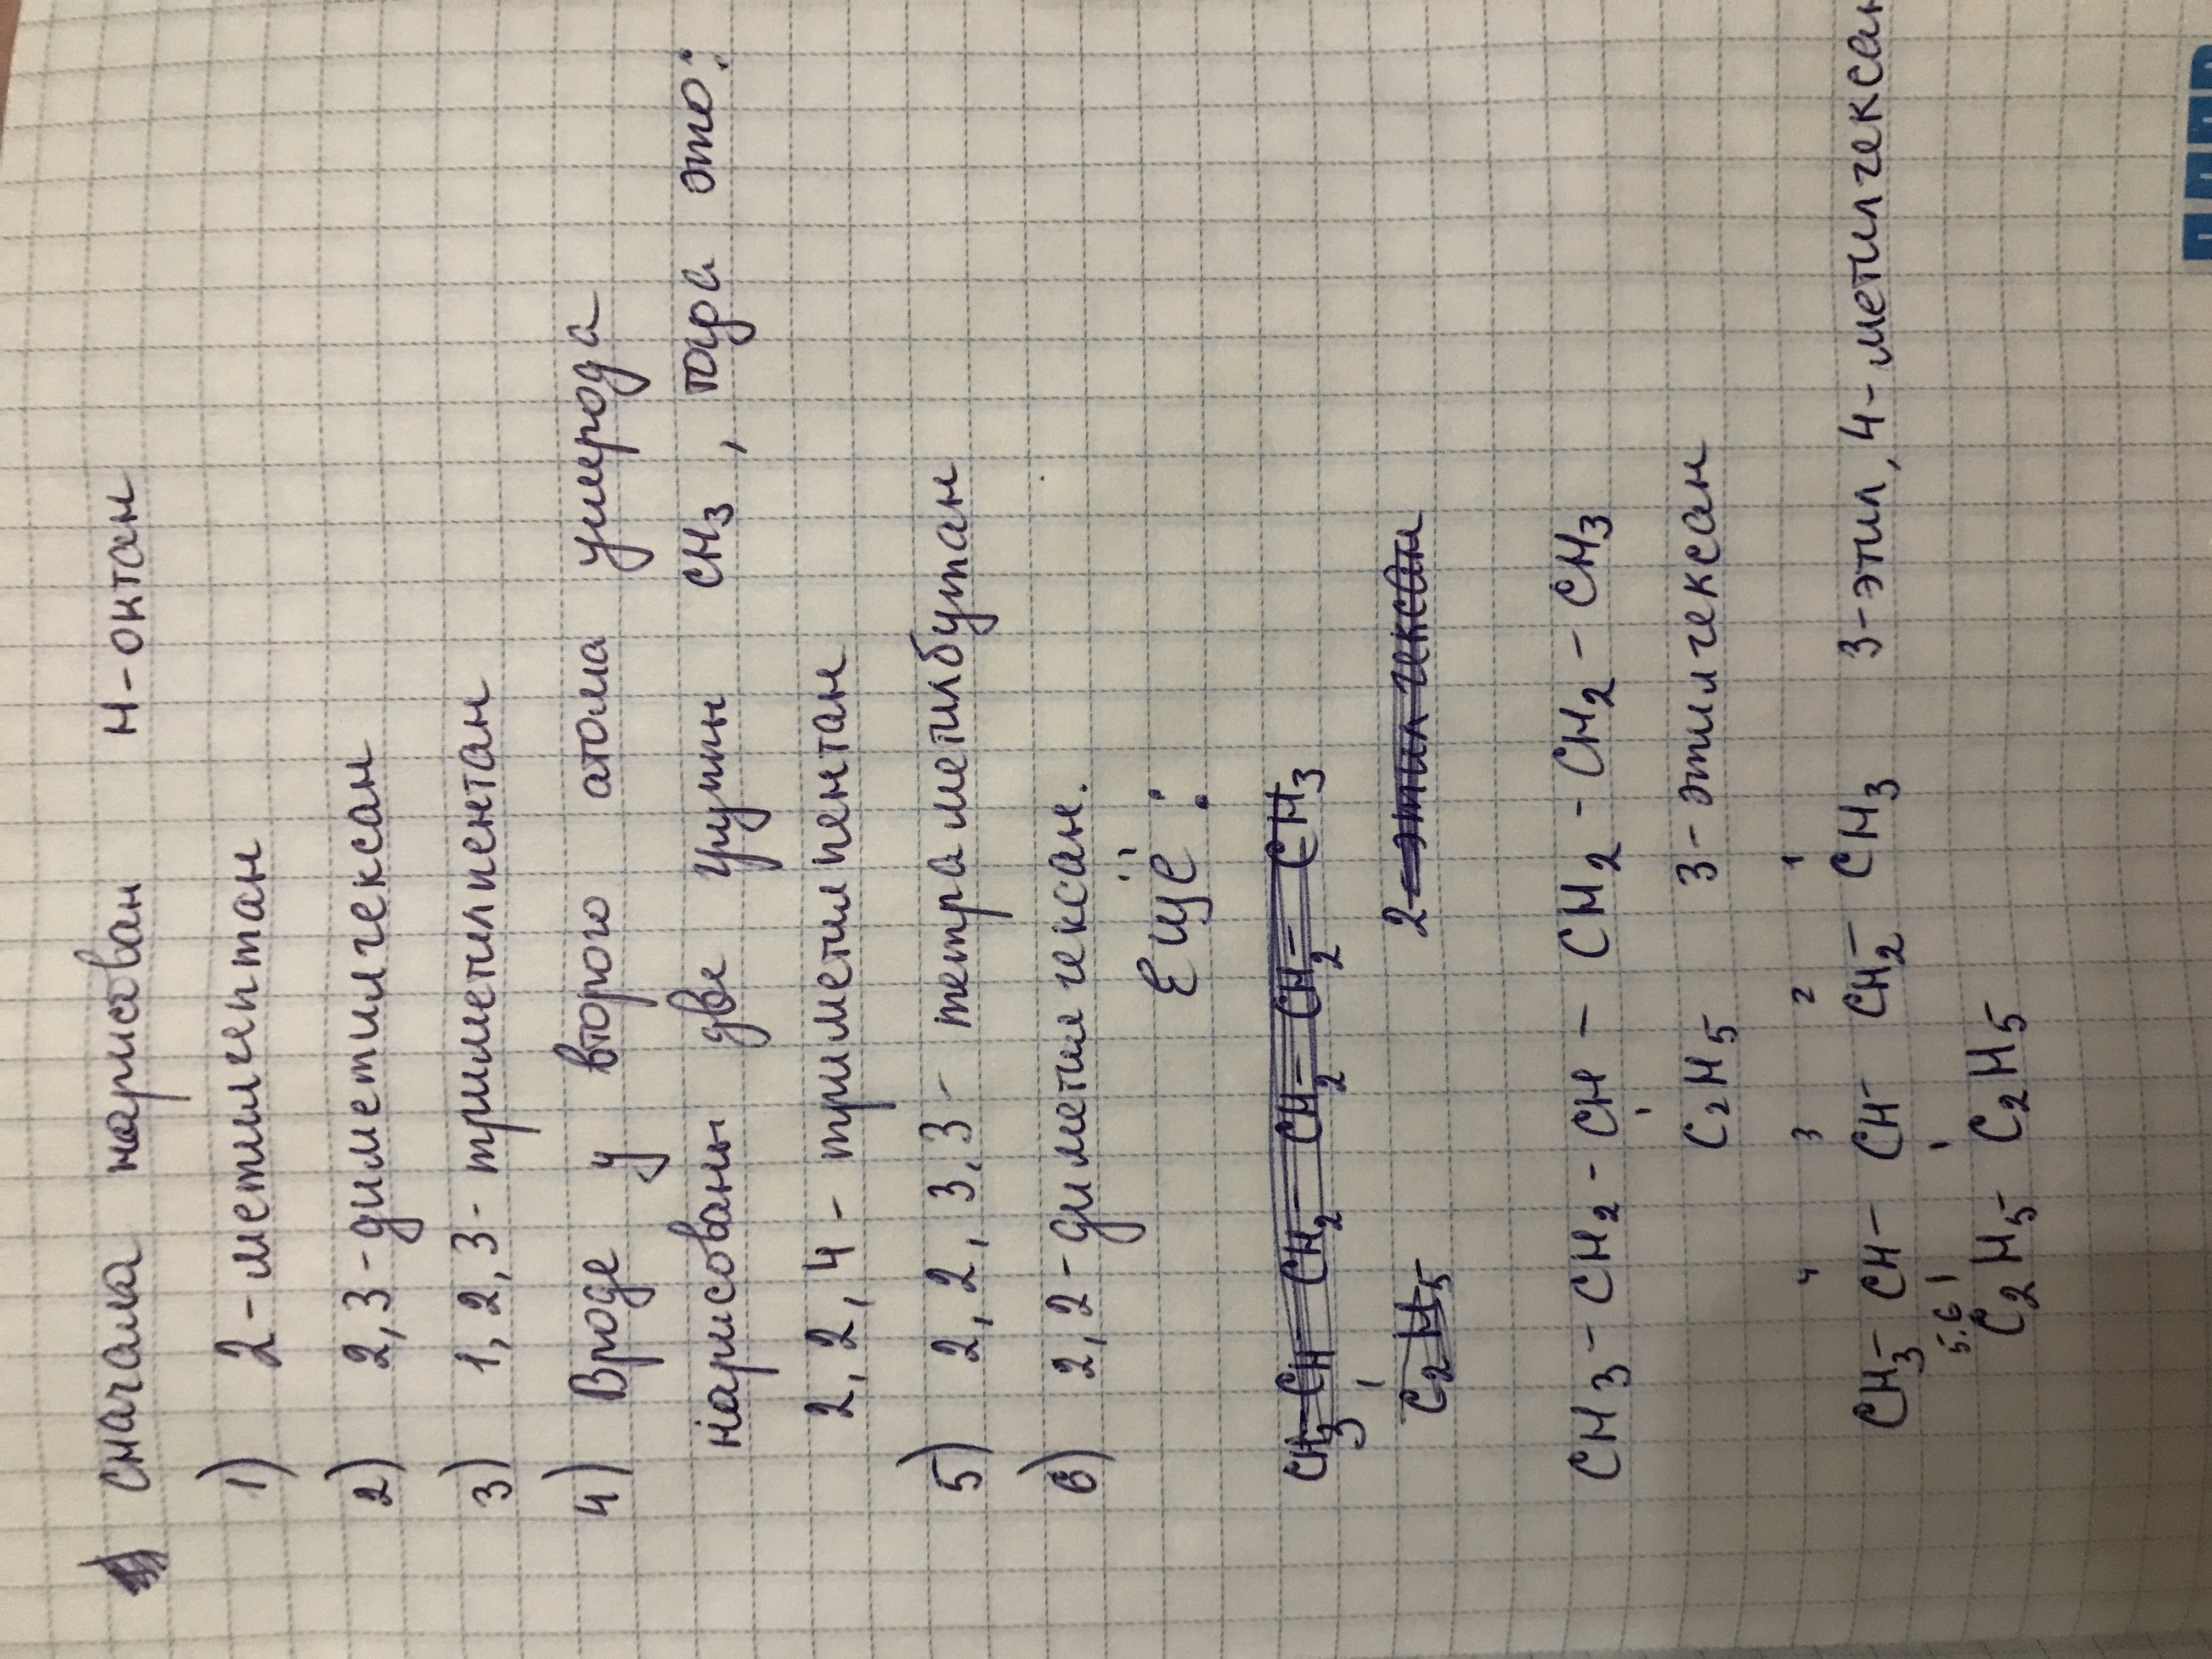 сначала нарисован н-октан
1) 2-метилгептан
2) 2,3-диметилгексан
3) 1,2,3-триметилпентан
4) Вроде у второго атома углерода
нарисованы две групы CH3, тогда это:
2,2,4-триметилпентан
5) 2,2,3,3-тетраметилбутан
6) 2,2-диметилгексан.
Ещё:
CH3-CH-CH2-CH2-CH2-CH3
C2H5 2-этилгексан
CH3-CH2-CH-CH2-CH2-CH3
C2H5 3-этилгексан
4 3 2 1
CH3-CH-CH-CH2-CH3 3-этил, 4-метилгексан
5,6
C2H5-C2H5